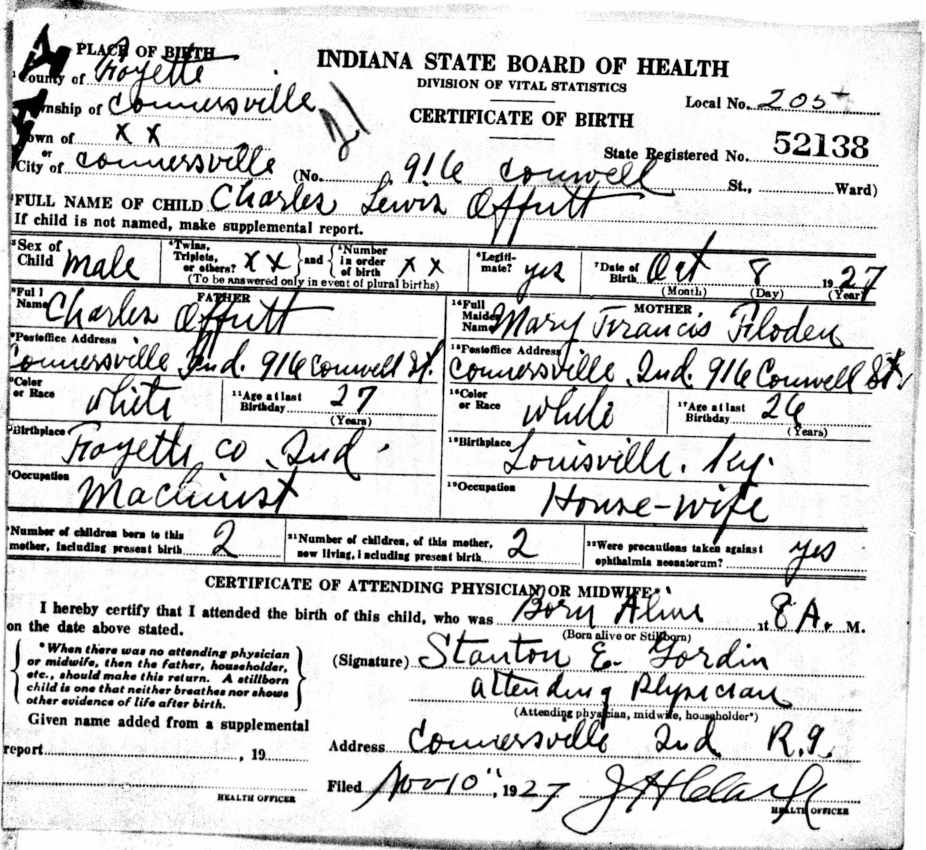 PLACE OF BIRTH
County of Fayette
INDIANA STATE BOARD OF HEALTH
DIVISION OF VITAL STATISTICS
Township of Connersville
Local No. 205
CERTIFICATE OF BIRTH
Town of X X
or
State Registered No. 52138
City of Connersville (No. 916 Conwell St., Ward)
FULL NAME OF CHILD Charles Lewis Offutt
If child is not named, make supplemental report.
Sex of Child male
Twins, Triplets, or others? X X and Number in order of birth X X
(To be answered only in event of plural births)
Legitimate? yes
Date of Birth Oct 8 1927
(Month) (Day) (Year)
FATHER
Full Name Charles Offutt
MOTHER
Full Maiden Name Mary Francis Floden
Postoffice Address
Connersville Ind. 916 Conwell St.
Postoffice Address
Connersville Ind. 916 Conwell St
Color or Race white
Age at last Birthday 27
(Years)
Color or Race white
Age at last Birthday 26
(Years)
Birthplace Fayette Co Ind.
Birthplace Louisville. Ky.
Occupation Machinist
Occupation House-wife
Number of children born to this mother, including present birth 2
Number of children, of this mother, now living, including present birth 2
Were precautions taken against ophthalmia neonatorum? yes
CERTIFICATE OF ATTENDING PHYSICIAN OR MIDWIFE*
I hereby certify that I attended the birth of this child, who was Born Alive at 8 A. M.
on the date above stated.
(Born alive or Stillborn)
* When there was no attending physician
or midwife, then the father, householder,
etc., should make this return. A stillborn
child is one that neither breathes nor shows
other evidence of life after birth.
(Signature) Stanton E. Gordin
attending Physician
(Attending physician, midwife, householder*)
Given name added from a supplemental
report , 19
Address Connersville Ind R.9.
Filed Nov 10", 1927 J H Clark
HEALTH OFFICER
HEALTH OFFICER